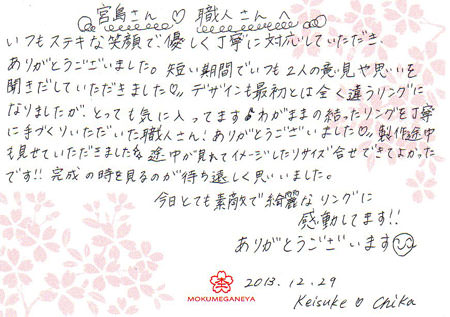 宮島さん ♡ 職人さん へ
いつもステキな笑顔で優しく丁寧に対応していただき、
ありがとうございました。短い期間でいつも2人の意見や思いを
聞きだしていただきました♡〃デザインも最初とは全く違うリングに
なりましたが、とっても気に入ってます♪わがままの結ったリングを丁寧
に手づくりいただいた職人さん!ありがとうございいました♡〃製作途中
も見せていただきました 途中が見れてイメージしたりサイズ合せできてよかった
です!! 完成の時を見るのが待ち遠しく思いました。
今日とても素敵で綺麗なリングに
感動してます!!
ありがとうございます
MOKUMEGANEYA
2013.12.29
Keisuke ♡ Chika